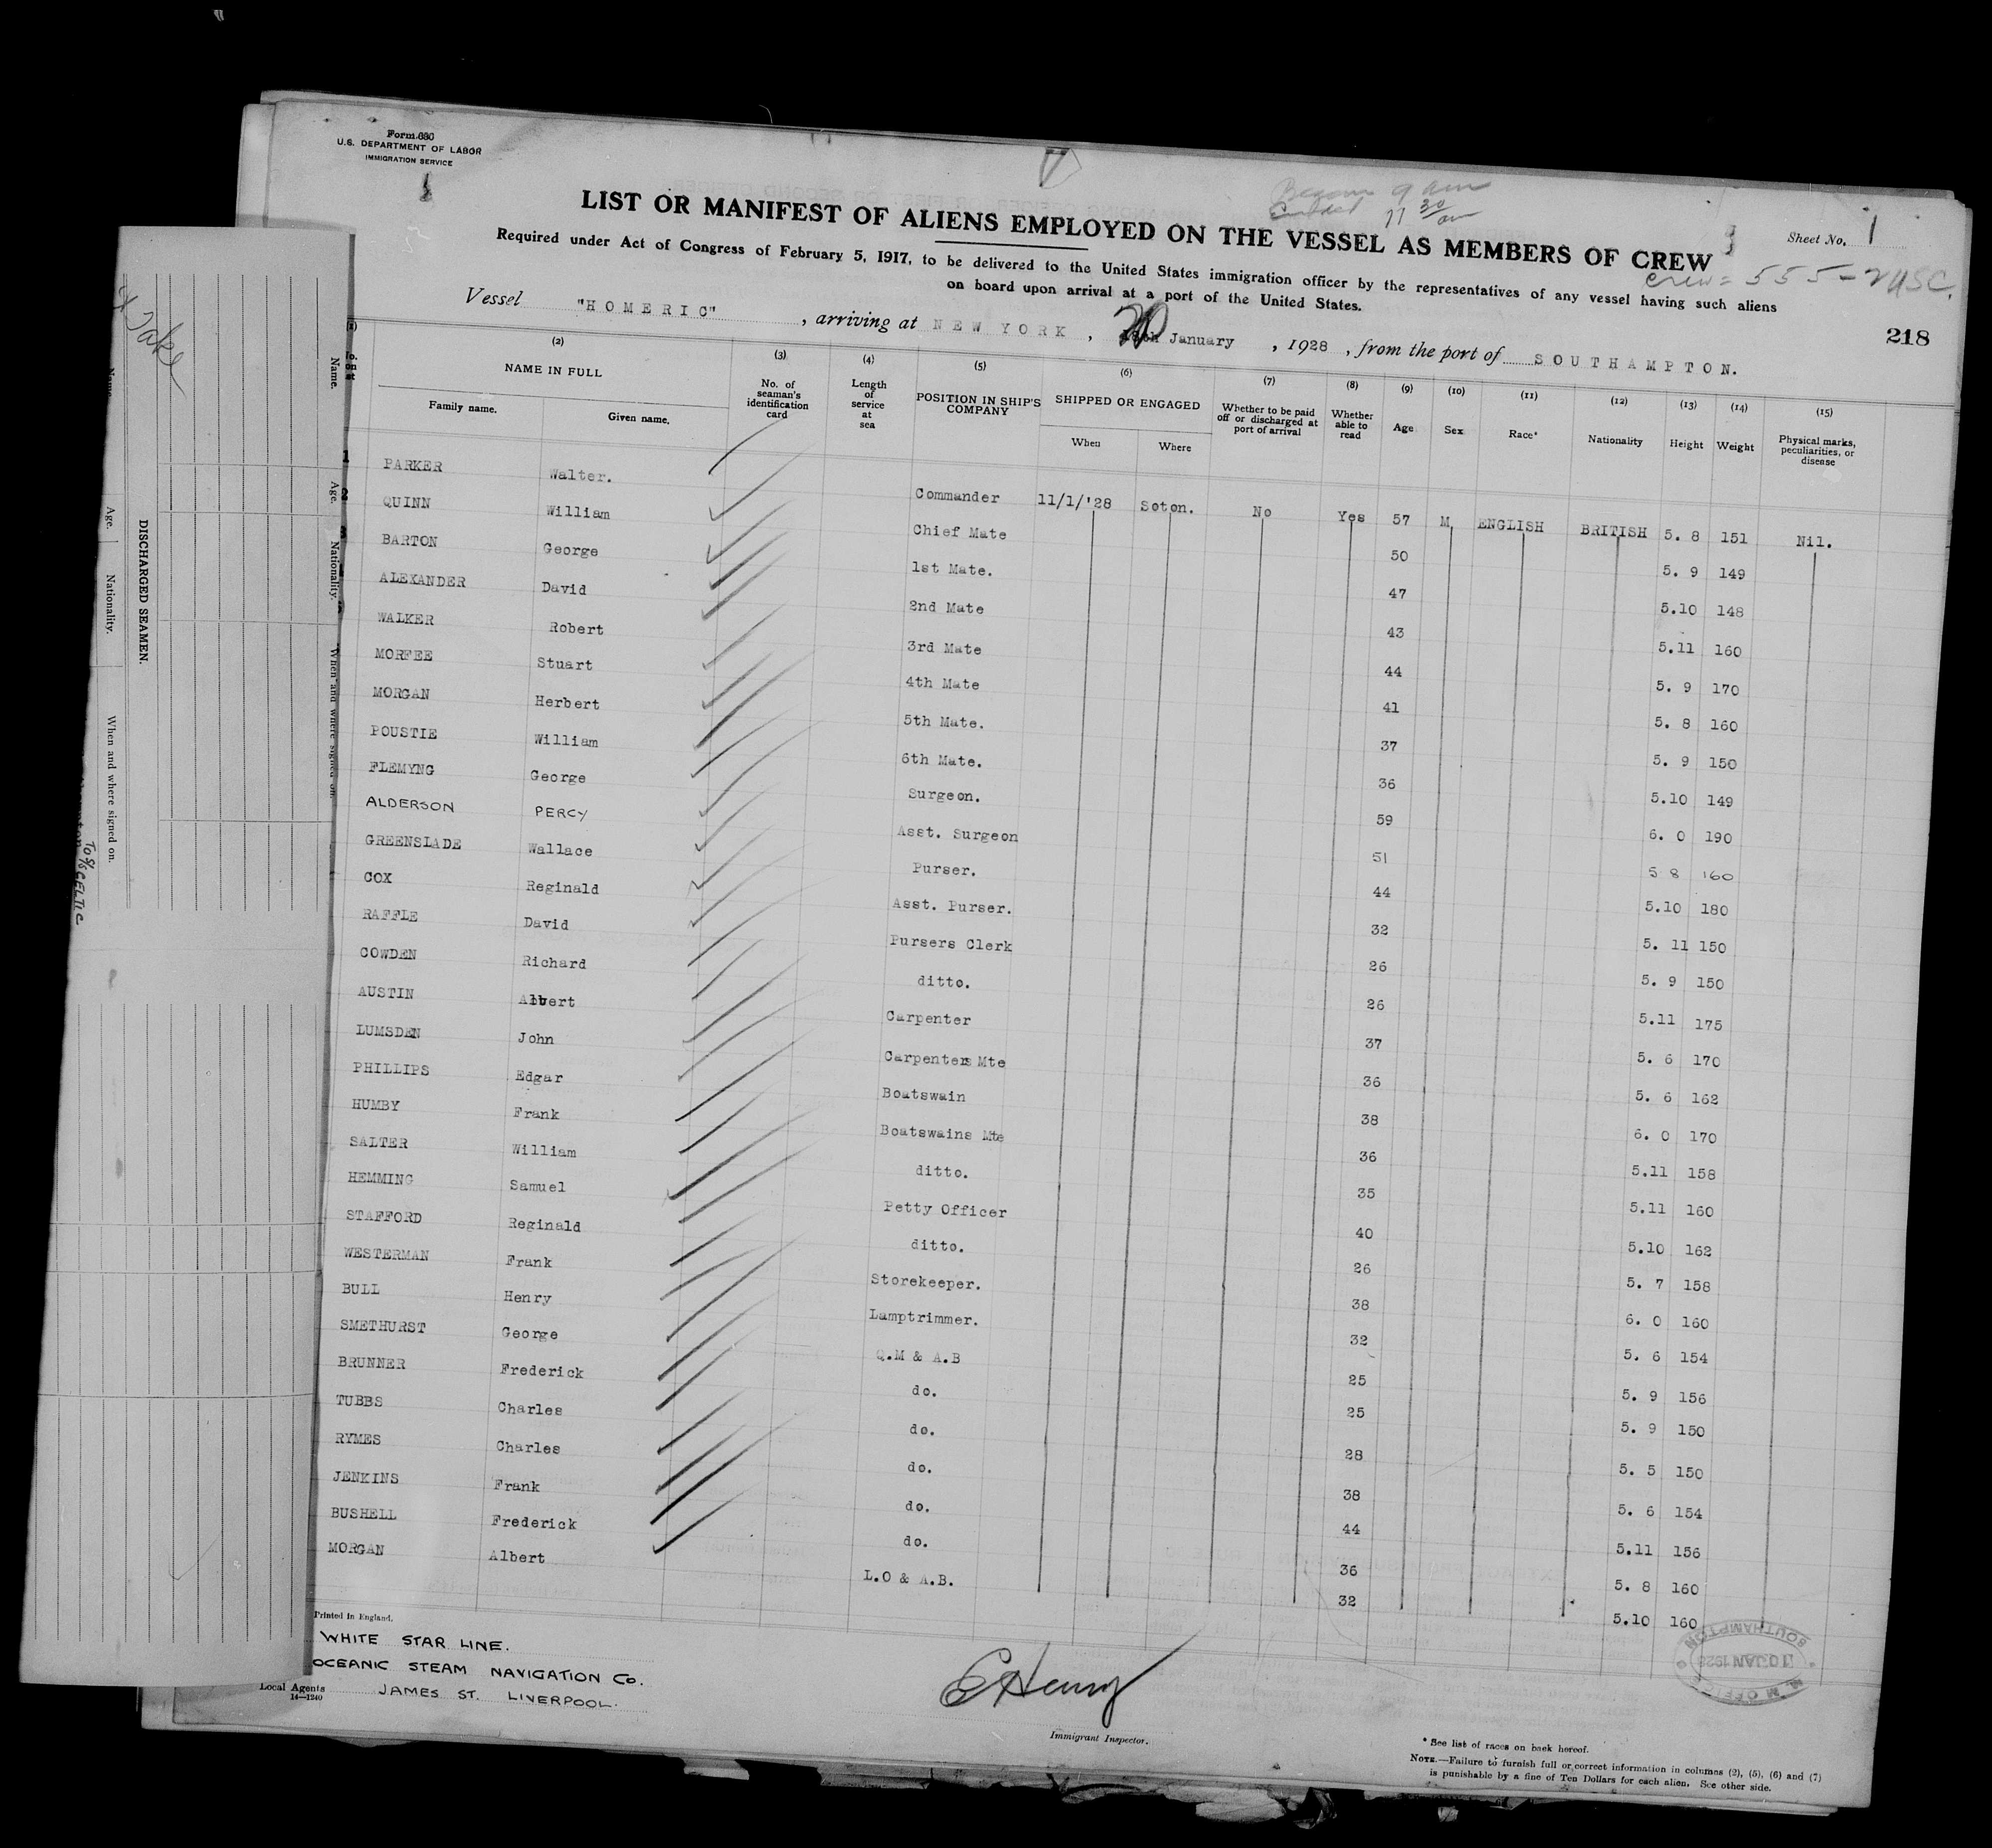 Form 680
U.S. DEPARTMENT OF LABOR
IMMIGRATION SERVICE
Began 9 am
Ended 11 30 am
LIST OR MANIFEST OF ALIENS EMPLOYED ON THE VESSEL AS MEMBERS OF CREW
Sheet No. 1
Crew = 555 - 2 USC.
Required under Act of Congress of February 5, 1917, to be delivered to the United States immigration officer by the representatives of any vessel having such aliens
on board upon arrival at a port of the United States.
218
Vessel "HOMERIC", arriving at NEW YORK, 20 January, 1928, from the port of SOUTHAMPTON.
(2) (3) (4) (5) (6) (7) (8) (9) (10) (11) (12) (13) (14) (15)
NAME IN FULL
Family name. Given name.
No. of seaman's identification card
Length of service at sea
POSITION IN SHIP'S COMPANY
SHIPPED OR ENGAGED
When Where
Whether to be paid off or discharged at port of arrival
Whether able to read
Age
Sex
Race*
Nationality
Height
Weight
Physical marks, peculiarities, or disease
1 PARKER Walter. Commander 11/1/'28 Soton. No Yes 57 M ENGLISH BRITISH 5. 8 151 Nil.
2 QUINN William Chief Mate 50 5. 9 149
3 BARTON George 1st Mate. 47 5.10 148
ALEXANDER David 2nd Mate 43 5.11 160
WALKER Robert 3rd Mate 44 5. 9 170
MORFEE Stuart 4th Mate 41 5. 8 160
MORGAN Herbert 5th Mate. 37 5. 9 150
POUSTIE William 6th Mate. 36 5.10 149
FLEMYNG George Surgeon. 59 6. 0 190
ALDERSON PERCY Asst. Surgeon 51 5 8 160
GREENSLADE Wallace Purser. 44 5.10 180
COX Reginald Asst. Purser. 32 5. 11 150
RAFFLE David Pursers Clerk 26 5. 9 150
COWDEN Richard ditto. 26 5.11 175
AUSTIN Albert Carpenter 37 5. 6 170
LUMSDEN John Carpenters Mte 36 5. 6 162
PHILLIPS Edgar Boatswain 38 6. 0 170
HUMBY Frank Boatswains Mte 36 5.11 158
SALTER William ditto. 35 5.11 160
HEMMING Samuel Petty Officer 40 5.10 162
STAFFORD Reginald ditto. 26 5. 7 158
WESTERMAN Frank Storekeeper. 38 6. 0 160
BULL Henry Lamptrimmer. 32 5. 6 154
SMETHURST George Q.M & A.B 25 5. 9 156
BRUNNER Frederick do. 25 5. 9 150
TUBBS Charles do. 28 5. 5 150
RYMES Charles do. 38 5. 6 154
JENKINS Frank do. 44 5.11 156
BUSHELL Frederick do. 36 5. 8 160
MORGAN Albert L.O & A.B. 32 5.10 160
Printed in England.
WHITE STAR LINE.
OCEANIC STEAM NAVIGATION Co.
Local Agents JAMES ST. LIVERPOOL.
14—1240
E Henry
Immigrant Inspector.
SOUTHAMPTON
10 JAN 1928
M. M OFFICE
* See list of races on back hereof.
NOTE.—Failure to furnish full or correct information in columns (2), (5), (6) and (7)
is punishable by a fine of Ten Dollars for each alien. See other side.
DISCHARGED SEAMEN.
Name. Age. Nationality. When and where signed on.
Name. Age. Nationality. When and where signed on.
To S/S CELTIC